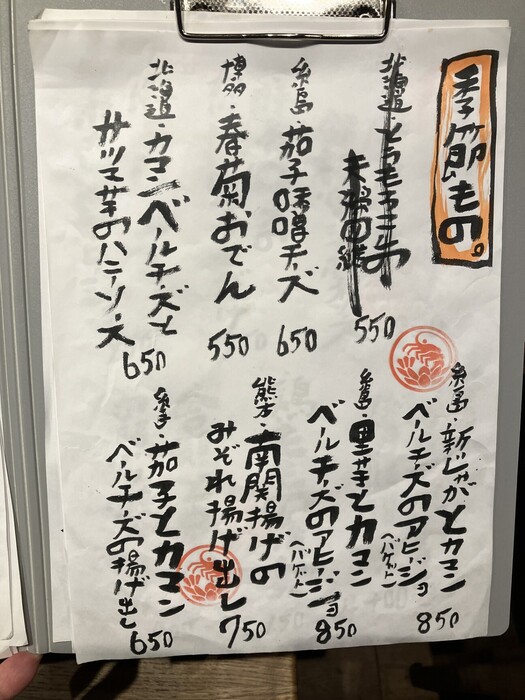 季節もの。
北海道・とうもろこしの
550
糸島・茄子味噌チーズ
650
博多・春菊おでん
550
北海道・カマンベールチーズと
サツマ芋のハニーソース
650
糸島・新じゃがとカマン
ベールチーズのアヒージョ
(バゲット)
850
糸島・里芋とカマン
ベールチーズのアヒージョ
(バゲット)
850
熊本・南関揚げの
みぞれ揚げ出し
750
糸島・茄子とカマン
ベールチーズの揚げ出し
650